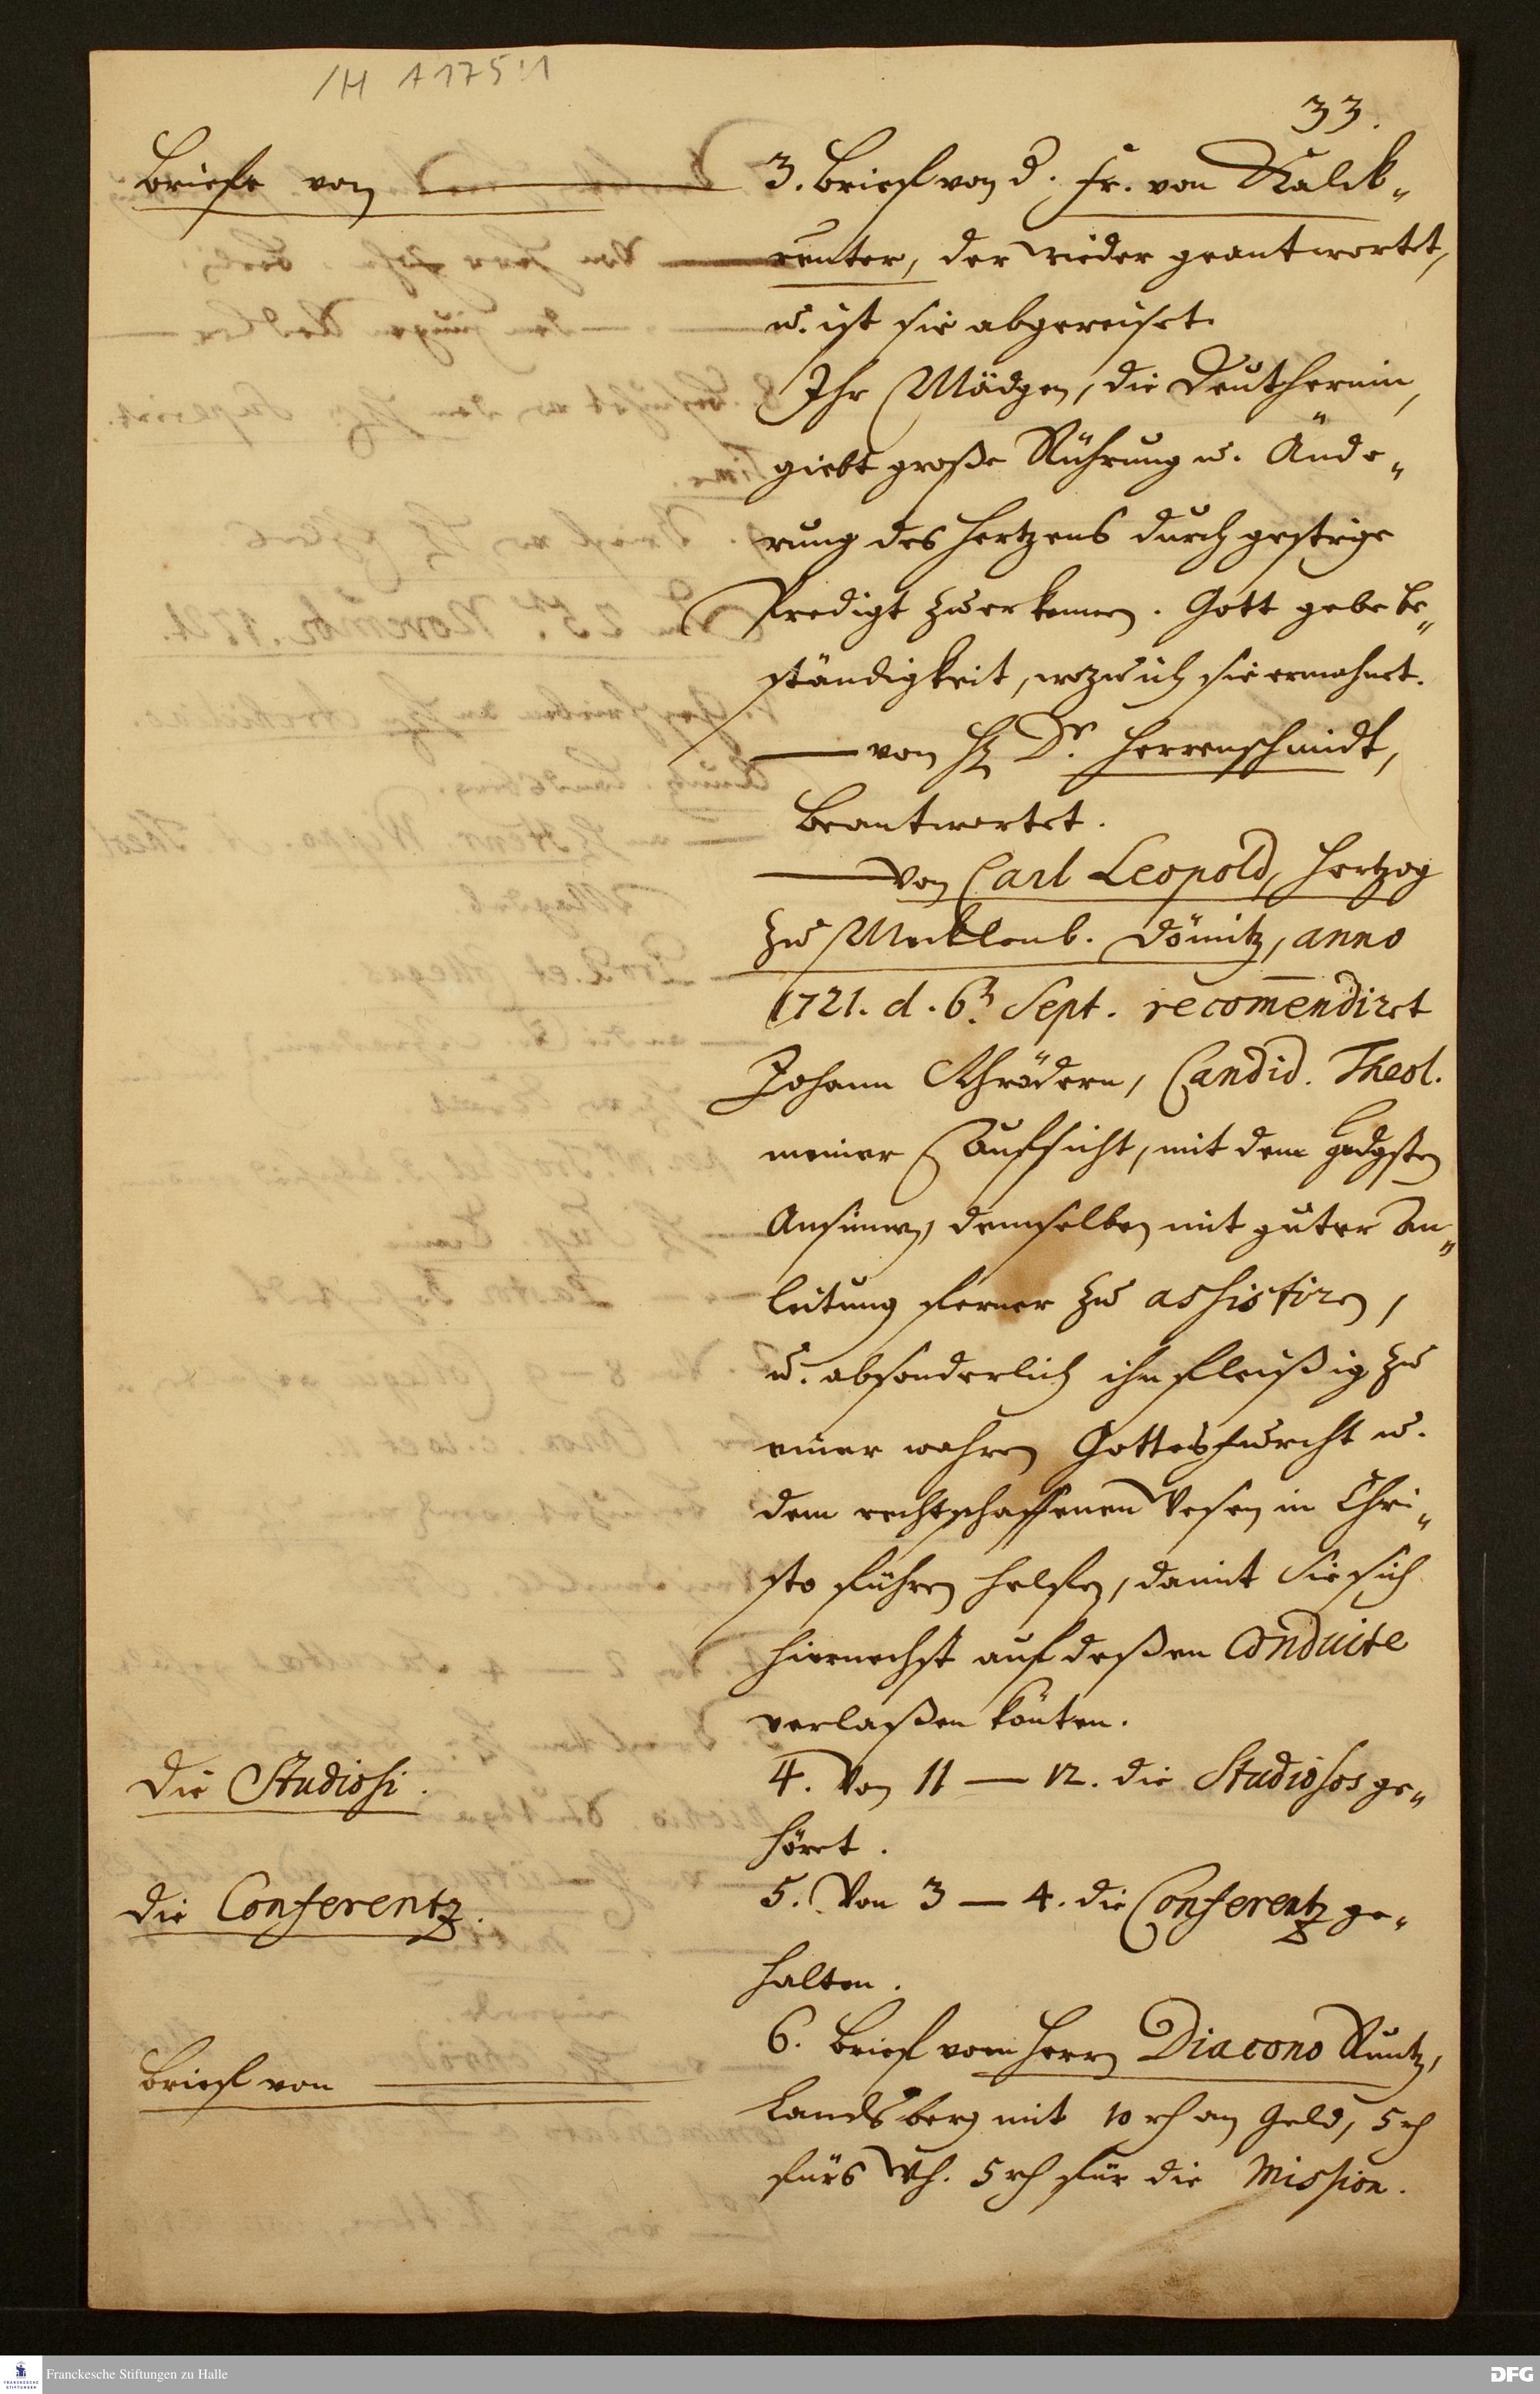 /H A 175:1
33.
Briefe von
3. Brief von d. Fr. von Kalck„
reuter, der wieder geantwortet,
u. ist sie abgereiset.
Ihr Mädgen, die Deutscherin,
giebt große Rührung u. Ände„
rung des Hertzens durch gestrige
Predigt zu erkennen. Gott gebe be„
ständigkeit, wozu ich sie ermahnet.
— von H. Dr. Herrenschmidt,
beantwortet.
— von Carl Leopold, Hertzog
zu Mecklenb. Dömitz, anno
1721. d. 6t. Sept. recom̄endiret
Johann Schrödern, Candid. Theol.
meiner Aufsicht, mit dem gndgsten
Ansinnen, demselben mit guter An„
leitung ferner zu assistiren,
u. absonderlich ihn fleißig zu
einer wahren Gottesfurcht u.
dem rechtschaffenen Wesen in Chri„
sto führen helfen, damit Sie sich
hiernechst auf deßen Conduite
verlaßen könten.
Die Studiosi.
4. Von 11 — 12. die Studiosos ge„
höret.
Die Conferentz.
5. Von 3 — 4. die Conferentz ge„
halten.
Brief von
6. Brief vom Herrn Diacono Kuntz,
Landsberg mit 10 rh an Geld, 5 rh
fürs Wh. 5 rh für die Mission.
Franckesche Stiftungen zu Halle
DFG